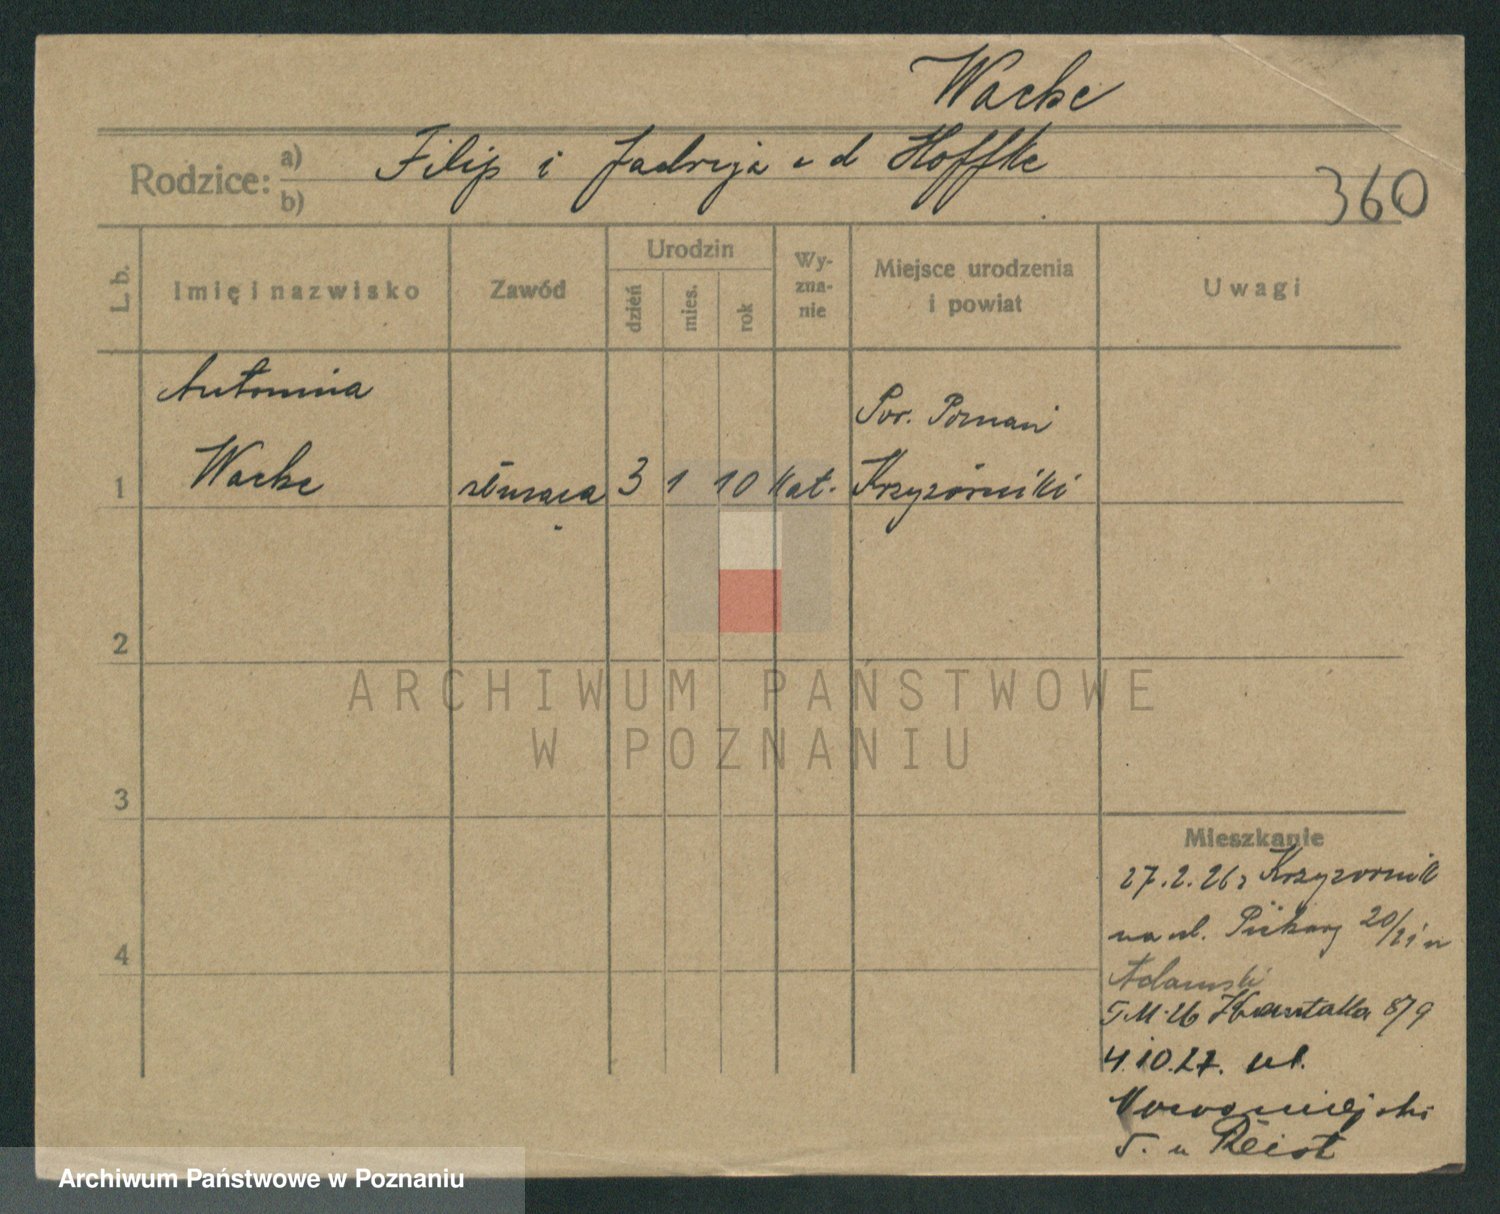 Wache
Rodzice: a) b) Filip i Jadwiga z d Hoffke
360
L. b.
Imię i nazwisko
Zawód
Urodzin
dzień
mies.
rok
Wy-
zna-
nie
Miejsce urodzenia
i powiat
Uwagi
Antonina
Pow. Poznań
1 Wache służąca 3 1 10 kat. Krzyżowniki
2
ARCHIWUM PAŃSTWOWE
W POZNANIU
3
Mieszkanie
27.2.26 z Krzyżownik
na ul. Piekary 20/21 u
4
Adamski
5.11.26 Kantaka 8/9
4.10.27. ul.
Nowomiejska
5. u
Archiwum Państwowe w Poznaniu